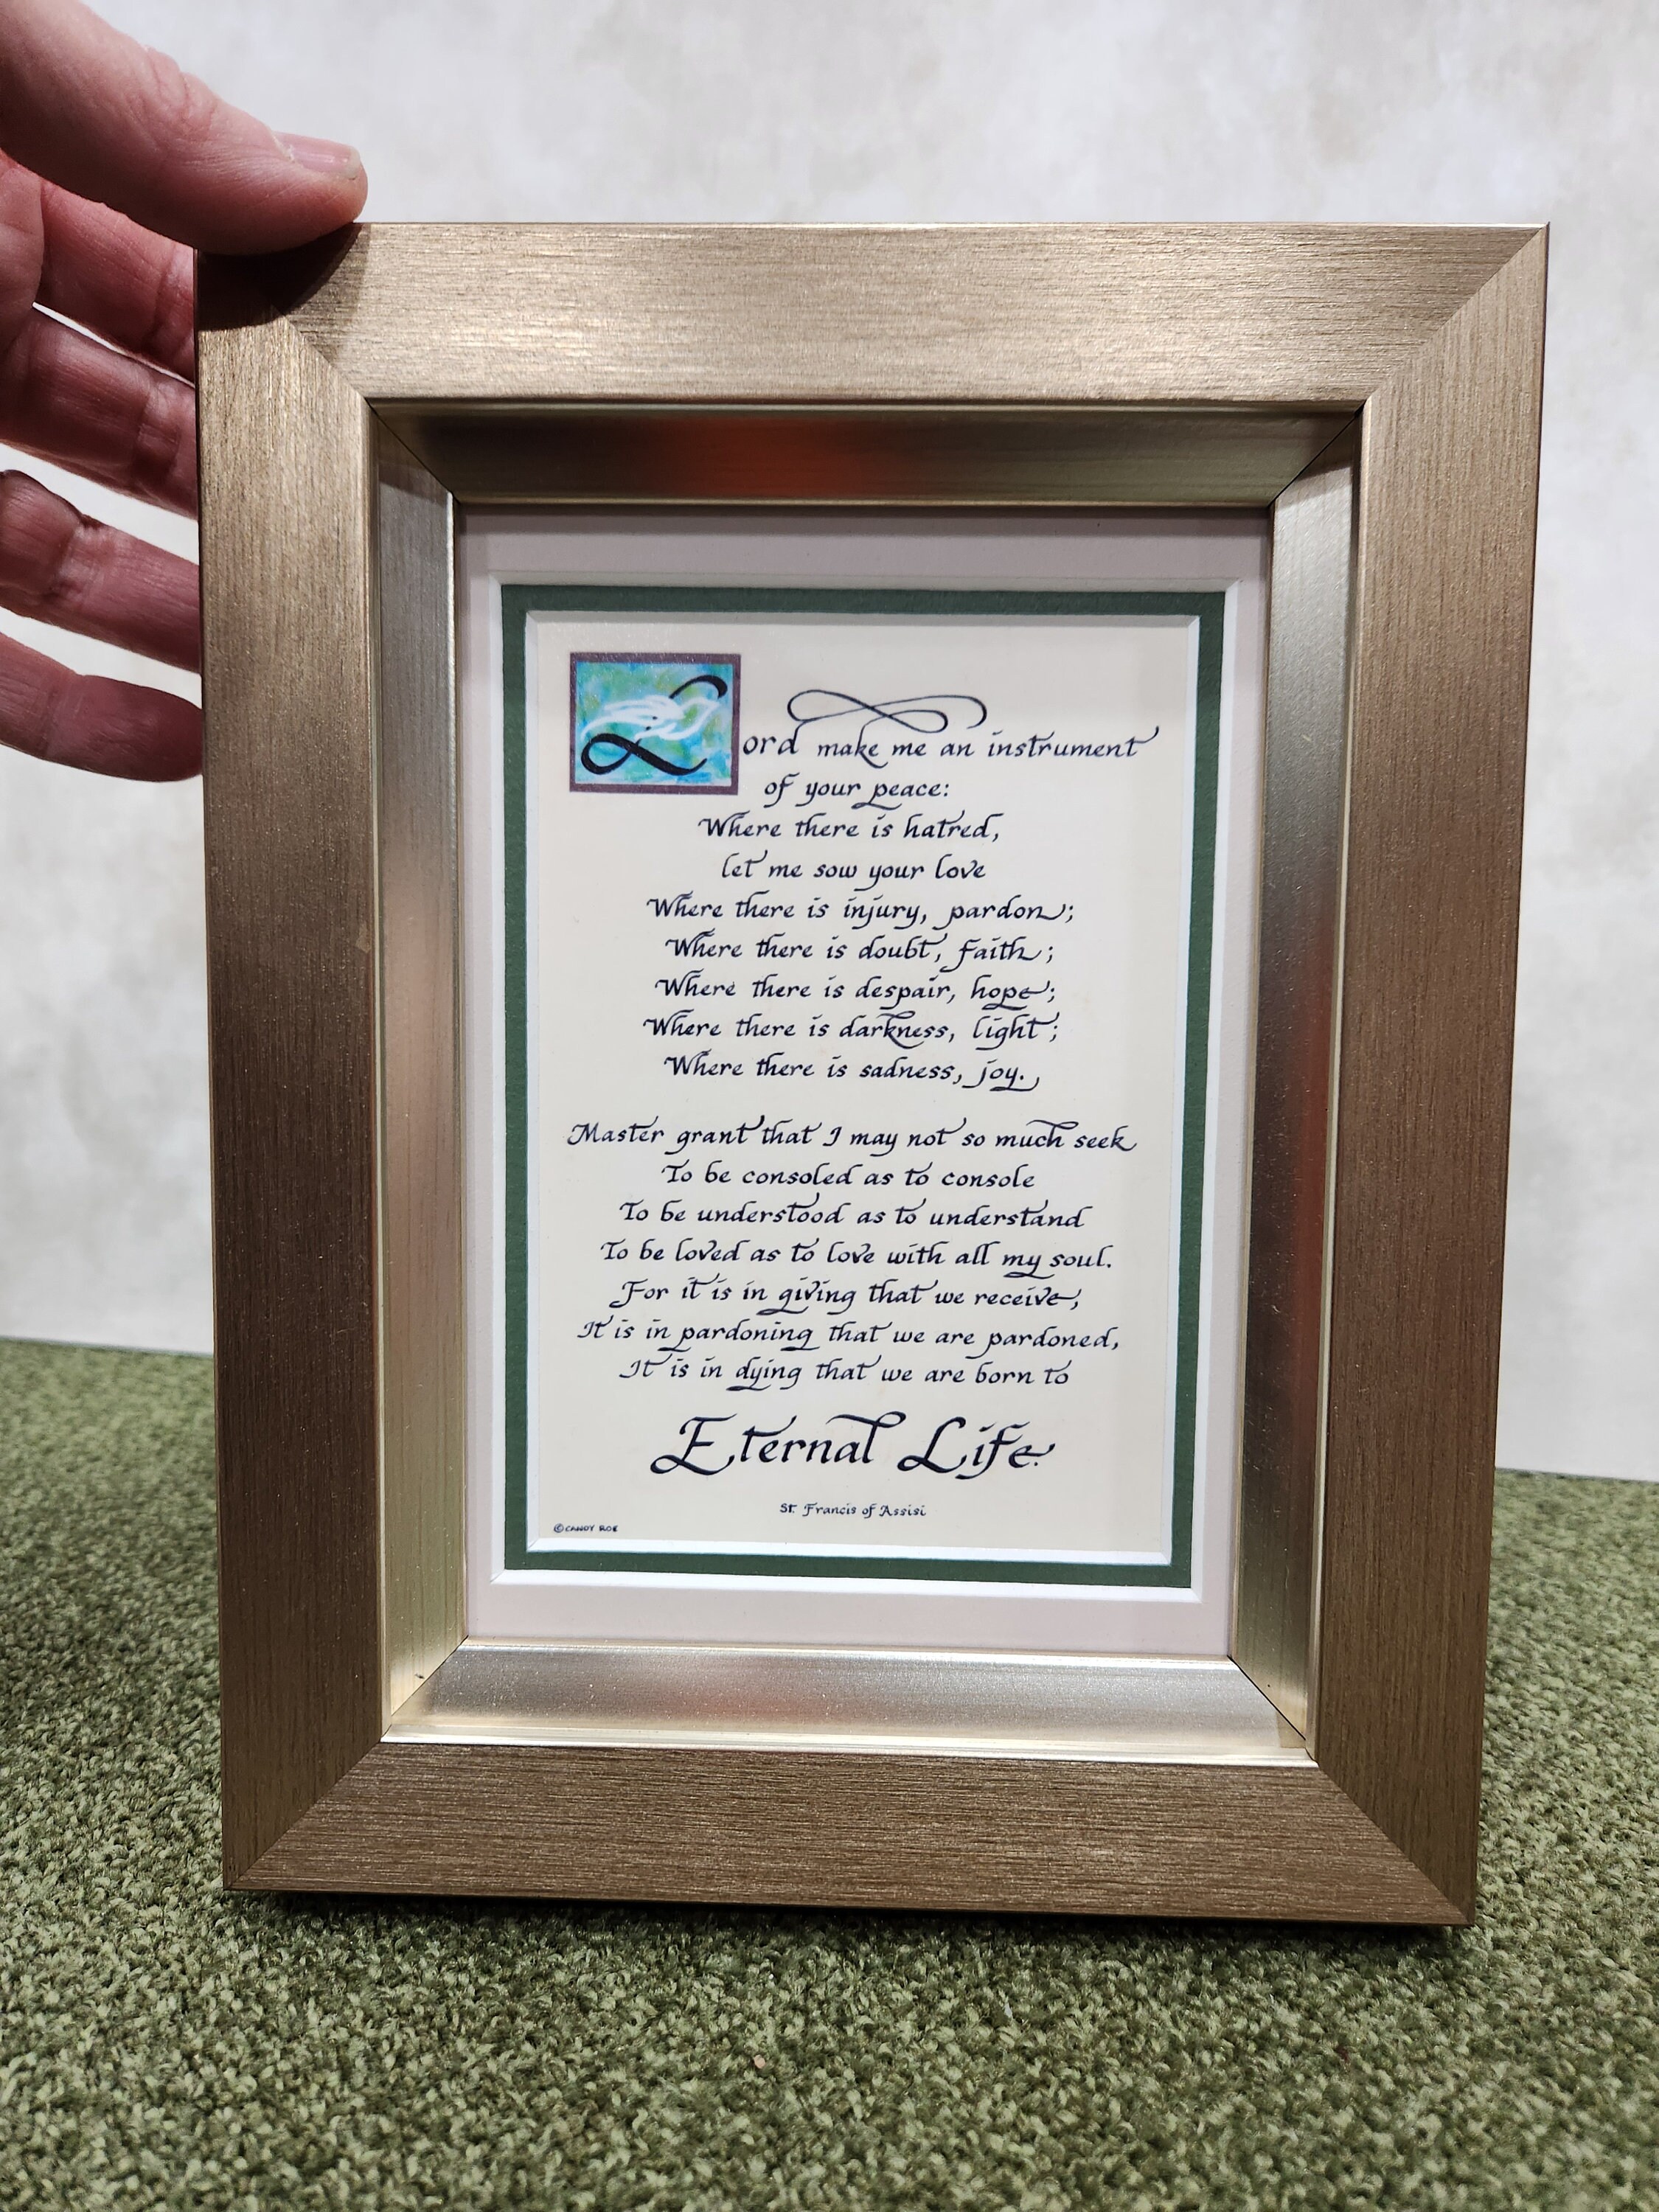 Lord make me an instrument
of your peace:
Where there is hatred,
let me sow your love
Where there is injury, pardon;
Where there is doubt, faith;
Where there is despair, hope;
Where there is darkness, light;
Where there is sadness, joy.
Master grant that I may not so much seek
To be consoled as to console
To be understood as to understand
To be loved as to love with all my soul.
For it is in giving that we receive,
It is in pardoning that we are pardoned,
It is in dying that we are born to
Eternal Life.
St. Francis of Assisi
© CANDY ROE